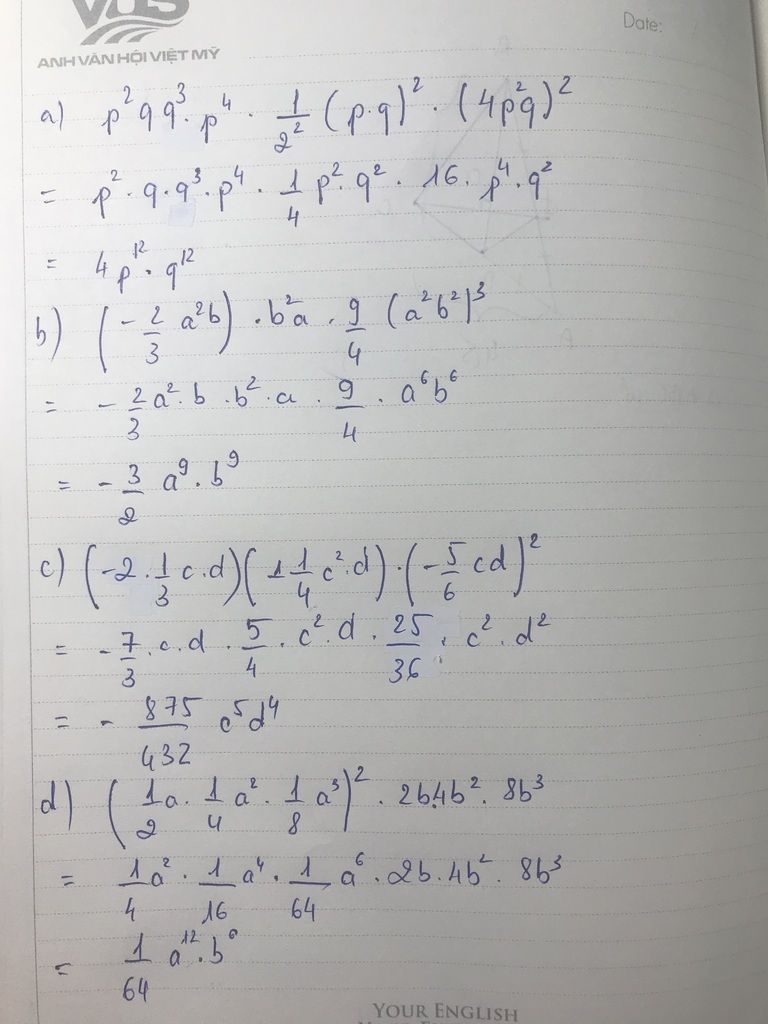 VUS
ANH VĂN HỘI VIỆT MỸ
Date:
a) p² q q³ · p⁴ · 1/2² (p·q)² · (4p²q)²
= p² · q · q³ · p⁴ · 1/4 p² · q² · 16 · p⁴ · q²
= 4p¹² · q¹²
b) (-2/3 a²b) · b²a · 9/4 (a²b²)³
= -2/3 a² · b · b² · a · 9/4 · a⁶b⁶
= -3/2 a⁹ · b⁹
c) (-2 · 1/3 c · d)(1 1/4 c² · d) · (-5/6 cd)²
= -7/3 · c · d · 5/4 · c² · d · 25/36 · c² · d²
= -875/432 c⁵d⁴
d) (1/2 a · 1/4 a² · 1/8 a³)² · 2b·4b² · 8b³
= 1/4 a² · 1/16 a⁴ · 1/64 a⁶ · 2b · 4b² · 8b³
= 1/64 a¹² · b⁶
YOUR ENGLISH